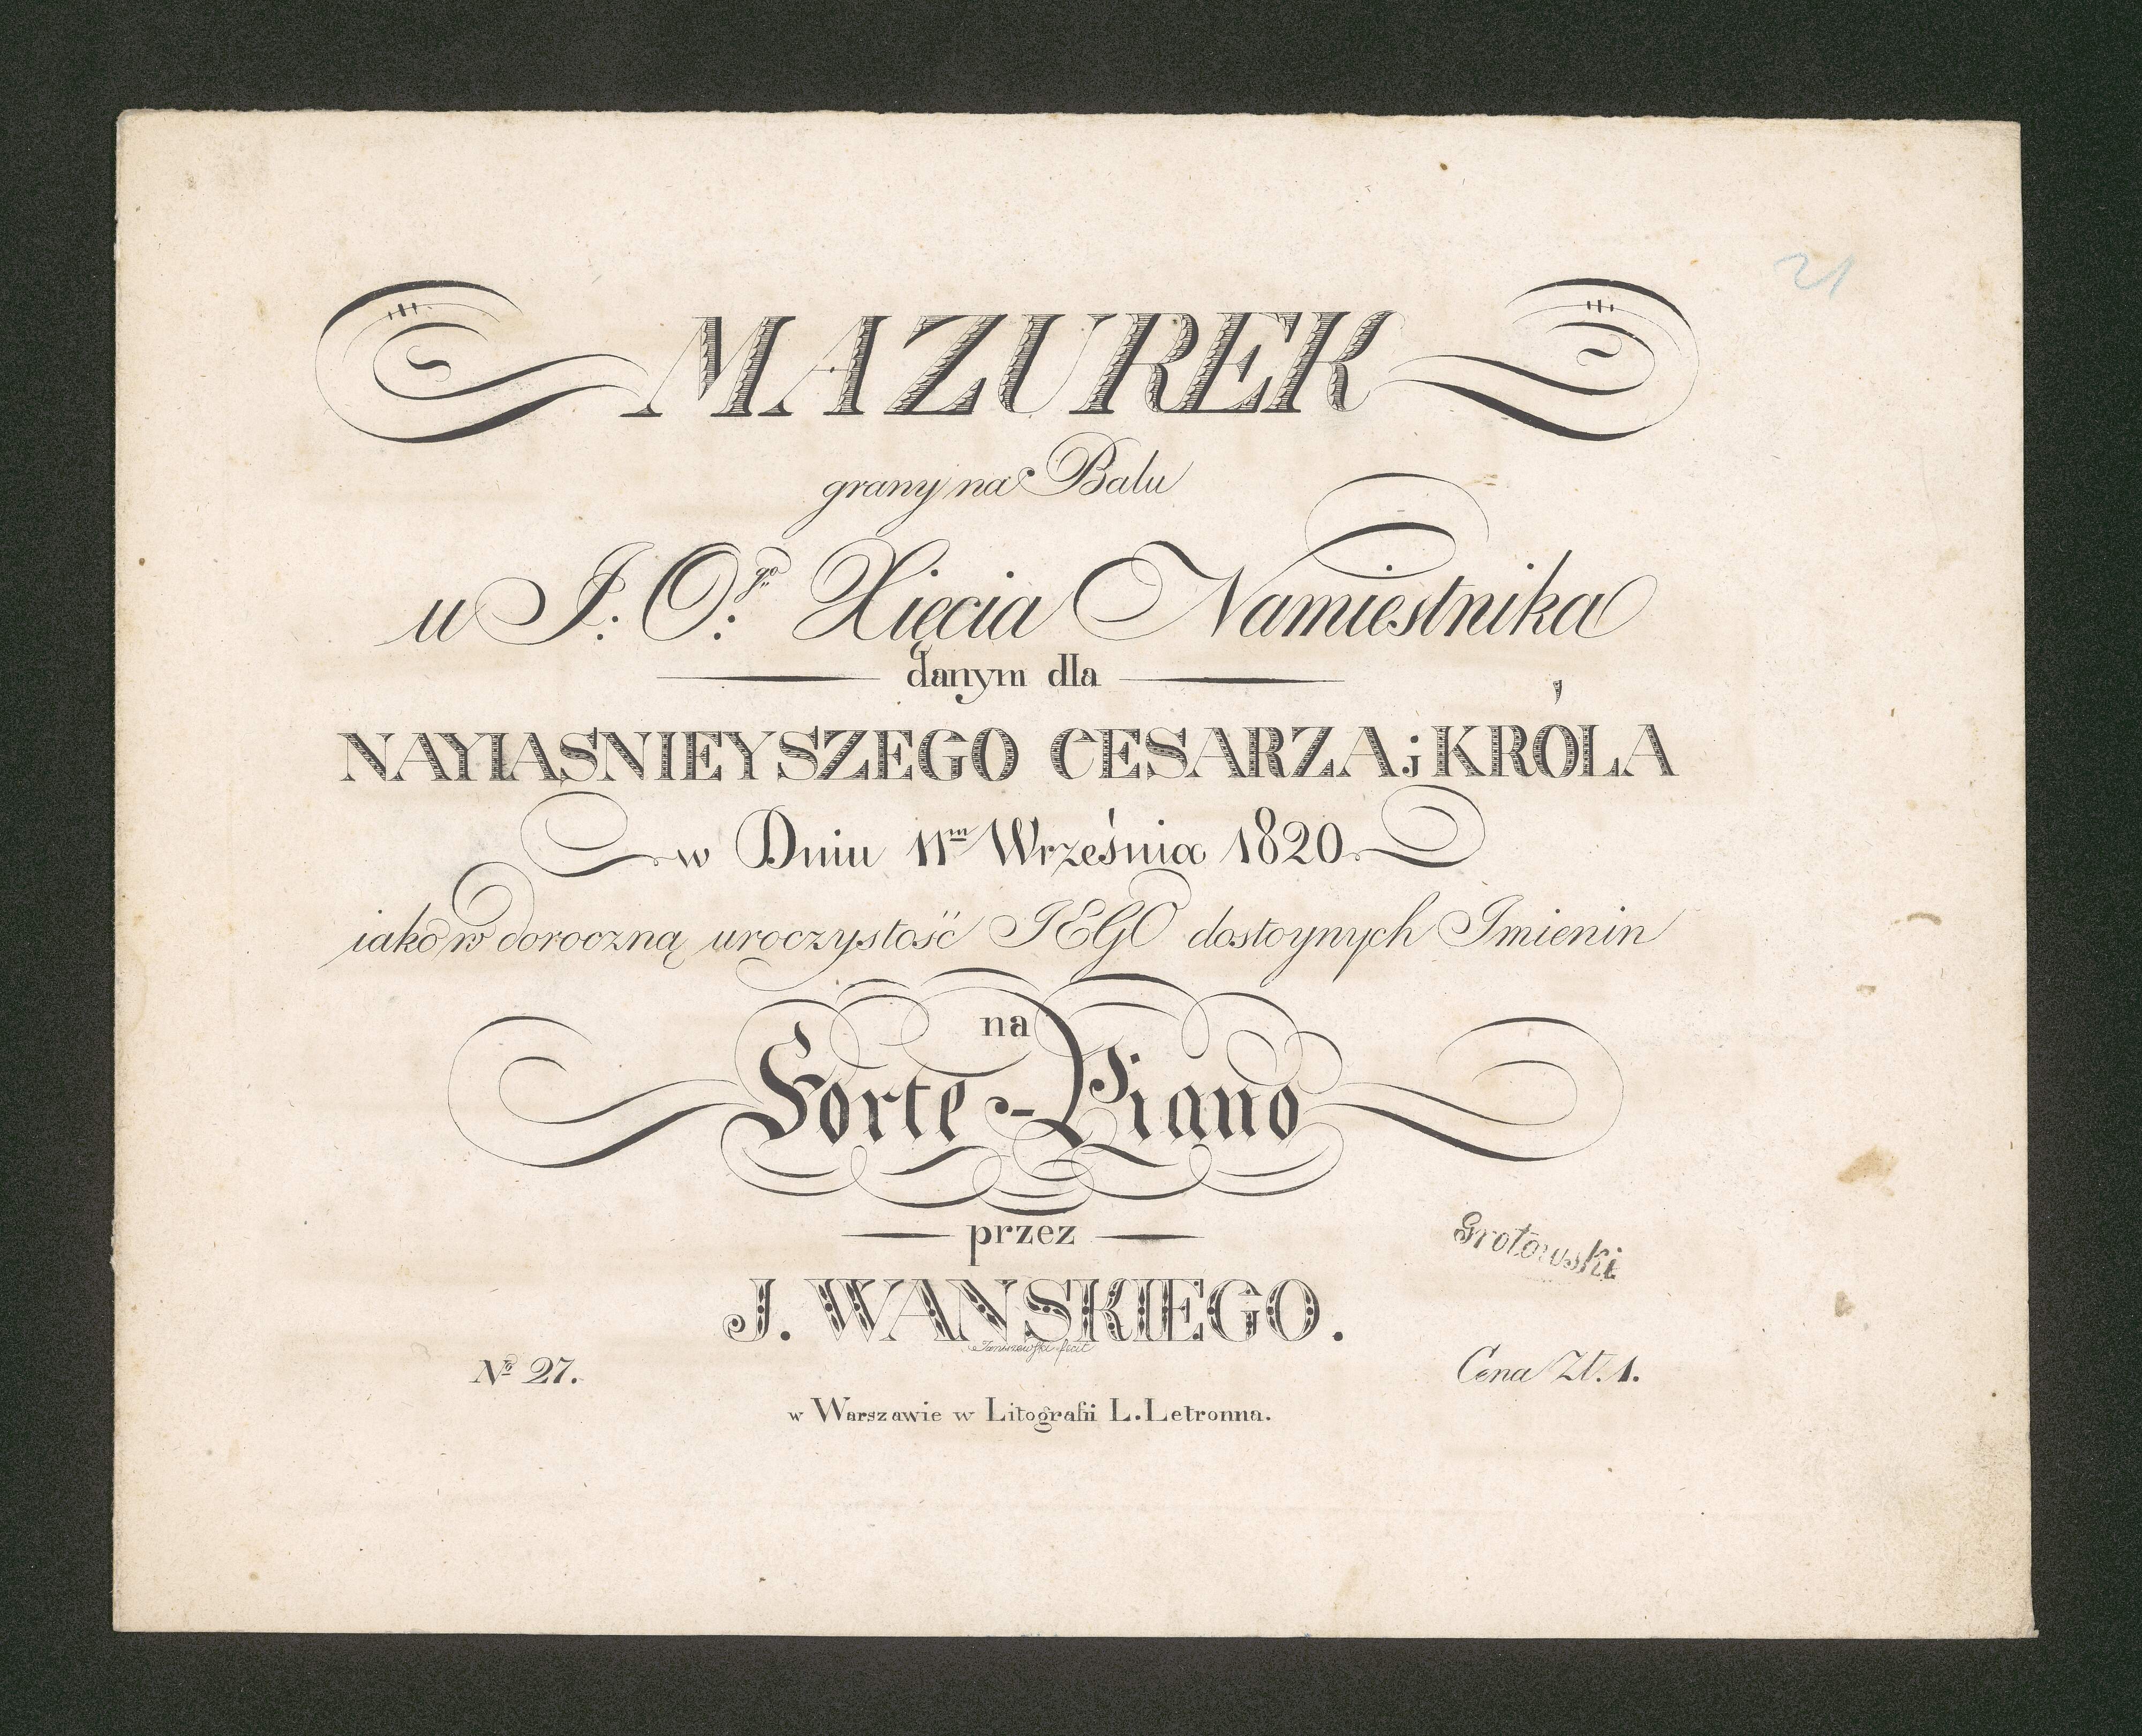 21
MAZUREK
grany na Balu
u J: O:go Xięcia Namiestnika
danym dla
NAYIASNIEYSZEGO CESARZA j KRÓLA
w Dniu 11m Września 1820
iako w doroczną uroczystość JEGO dostoynych Imienin
na
Forte-Piano
przez
J. WANSKIEGO.
Januszewski fecit
Grotowski
No 27.
Cena Zł. 1.
w Warszawie w Litografii L. Letronna.